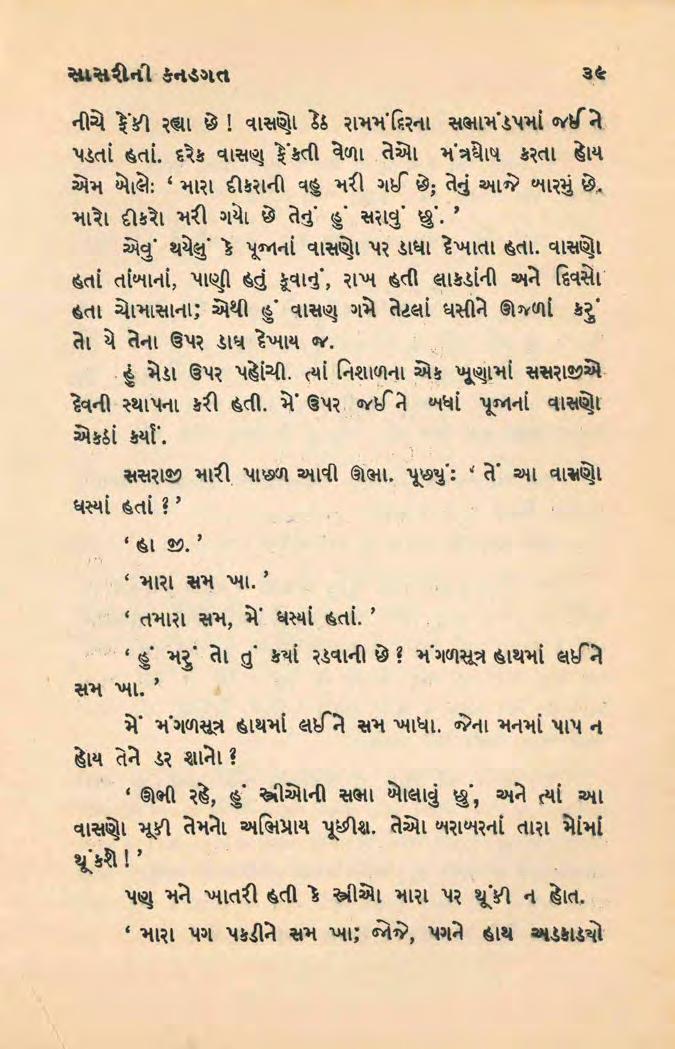 સાસરીની કનડગત ૩૯
નીચે ફેંકી રહ્યા છે ! વાસણો ઠેઠ રામમંદિરના સભામંડપમાં જઈને
પડતાં હતાં. દરેક વાસણ ફેંકતી વેળા તેઓ મંત્રઘોષ કરતા હોય
એમ બોલેઃ ‘ મારા દીકરાની વહુ મરી ગઈ છે; તેનું આજે બારમું છે.
મારો દીકરો મરી ગયો છે તેનું હું સરાવું છું. ’
એવું થયેલું કે પૂજાનાં વાસણો પર ડાઘા દેખાતા હતા. વાસણો
હતાં તાંબાનાં, પાણી હતું કૂવાનું, રાખ હતી લાકડાંની અને દિવસો
હતા ચોમાસાના; એથી હું વાસણ ગમે તેટલાં ઘસીને ઊજળાં કરું
તો યે તેના ઉપર ડાઘ દેખાય જ.
હું મેડા ઉપર પહોંચી. ત્યાં નિશાળના એક ખૂણામાં સસરાજીએ
દેવની સ્થાપના કરી હતી. મેં ઉપર જઈને બધાં પૂજાનાં વાસણો
એકઠાં કર્યાં.
સસરાજી મારી પાછળ આવી ઊભા. પૂછ્યું: ‘ તેં આ વાસણો
ઘસ્યાં હતાં ? ’
‘ હા જી. ’
‘ મારા સમ ખા. ’
‘ તમારા સમ, મેં ઘસ્યાં હતાં. ’
‘ હું મરું તો તું કયાં રડવાની છે ? મંગળસૂત્ર હાથમાં લઈને
સમ ખા. ’
મેં મંગળસૂત્ર હાથમાં લઈને સમ ખાધા. જેના મનમાં પાપ ન
હોય તેને ડર શાનો ?
‘ ઊભી રહે, હું સ્ત્રીઓની સભા બોલાવું છું, અને ત્યાં આ
વાસણો મૂકી તેમનો અભિપ્રાય પૂછીશ. તેઓ બરાબરનાં તારા મોંમાં
થૂંકશે ! ’
પણ મને ખાતરી હતી કે સ્ત્રીઓ મારા પર થૂંકી ન હોત.
‘ મારા પગ પકડીને સમ ખા; જોજે, પગને હાથ અડકાડયો